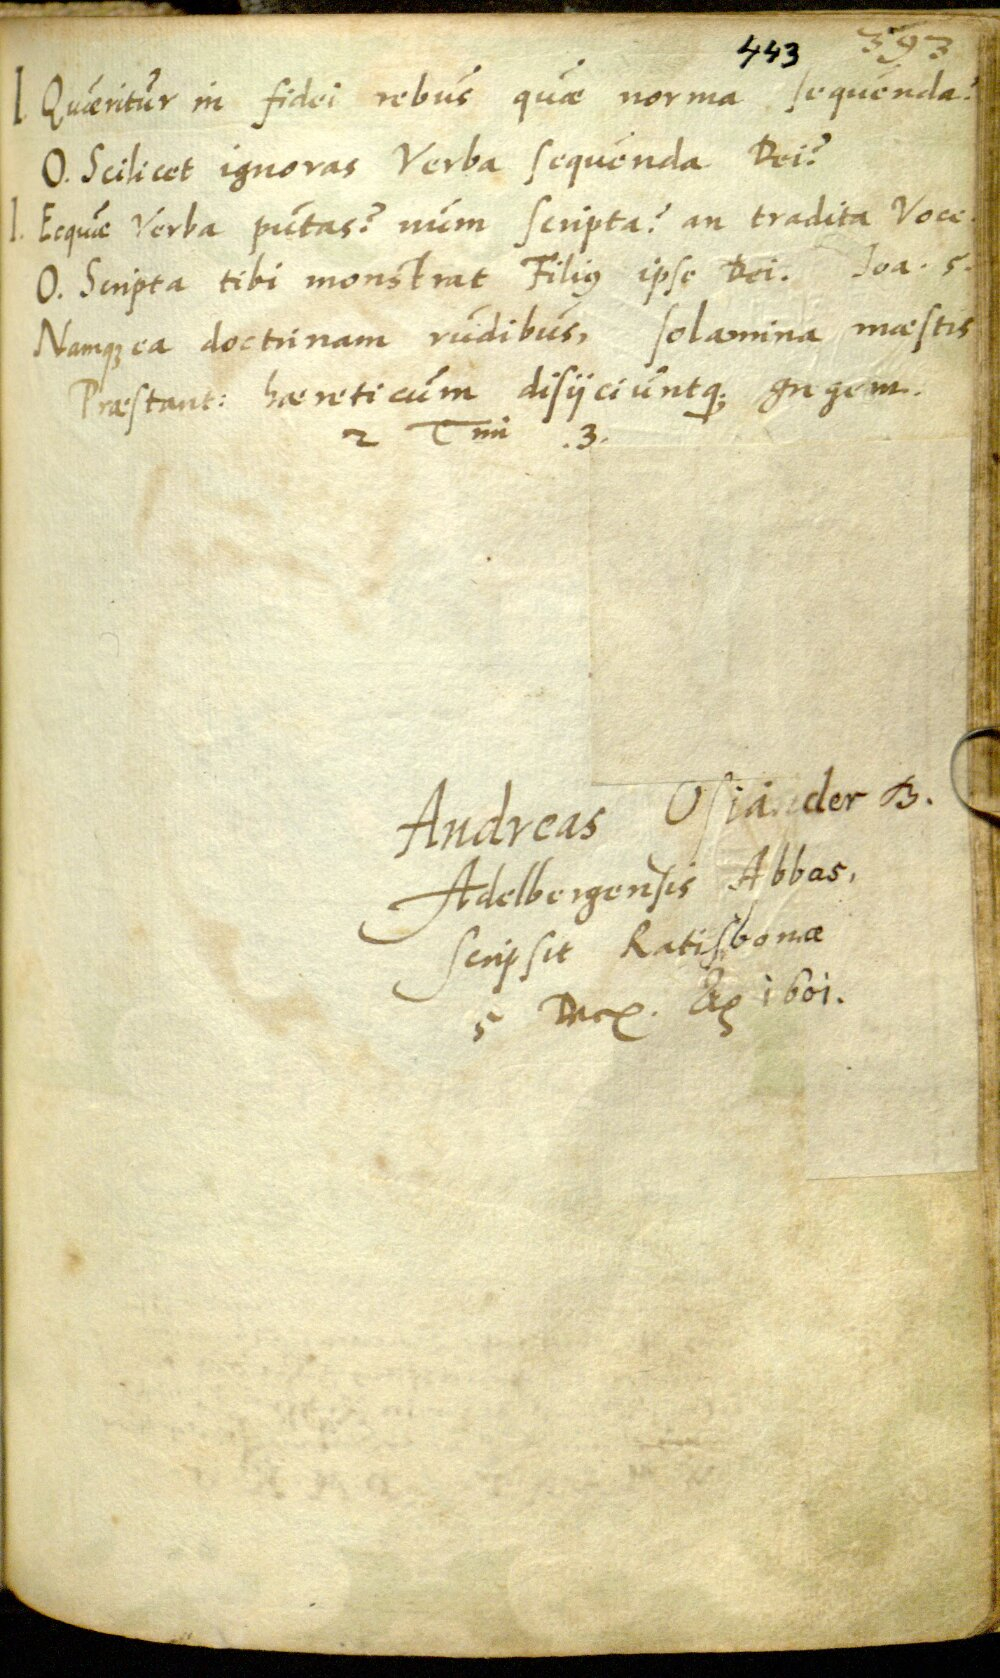 443 393
I. Quæritur in fidei rebus quæ norma sequenda?
O. Scilicet ignoras Verba sequenda Dei?
I. Ecquæ Verba putas? num scripta? an tradita Voce.
O. Scripta tibi monstrat Filiꝰ ipse Dei. Joa. 5.
Namqꝫ ea doctrinam rudibus, solamina mæstis
Præstant: hæreticum disijciuntqꝫ gregem.
2 Tim .3.
Andreas Osiander D.
Adelbergensis Abbas,
scripsit Ratisbonæ
5 Dec. 1601.